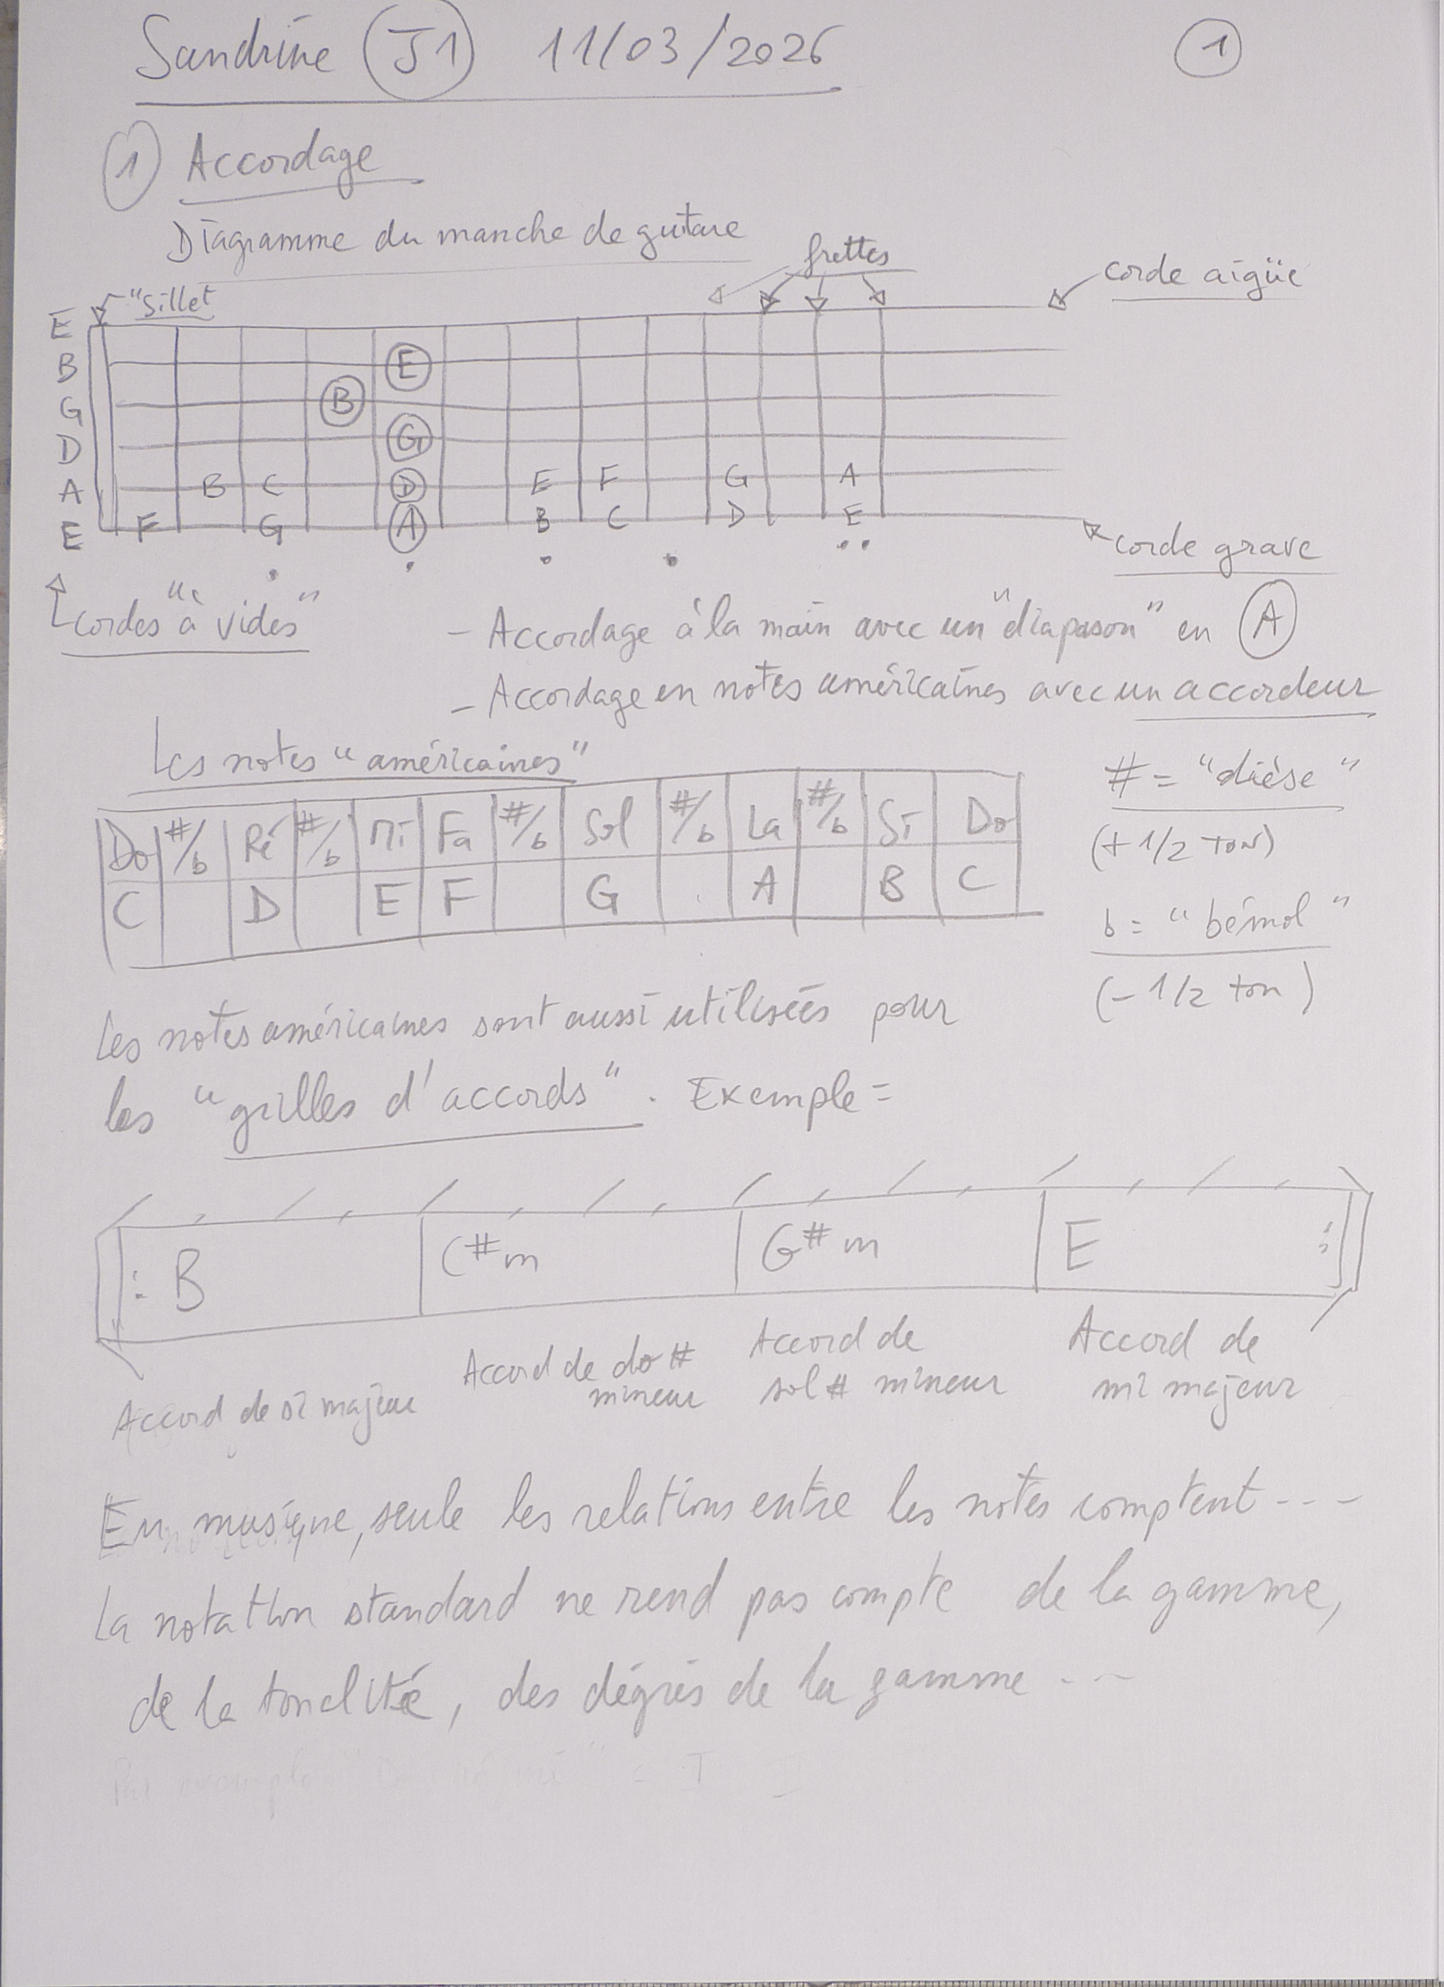 Sandrine J1 11/03/2026
1
1 Accordage
Diagramme du manche de guitare
frettes
corde aigüe
"Sillet
E
B E
G B
D G
A B C D E F G A
E F G A B C D E
corde grave
cordes "à vides"
- Accordage à la main avec un "diapason" en A
- Accordage en notes américaines avec un accordeur
Les notes "américaines"
Do #/b Ré #/b Mi Fa #/b Sol #/b La #/b Si Do
C D E F G A B C
# = "dièse"
(+ 1/2 ton)
b = "bémol"
(- 1/2 ton)
Les notes américaines sont aussi utilisées pour
les "grilles d'accords". Exemple =
: B C#m G#m E :
Accord de si majeur
Accord de do # mineur
Accord de sol # mineur
Accord de mi majeur
En musique, seule les relations entre les notes comptent ---
La notation standard ne rend pas compte de la gamme,
de la tonalité, des dégrés de la gamme ---
Par exemple